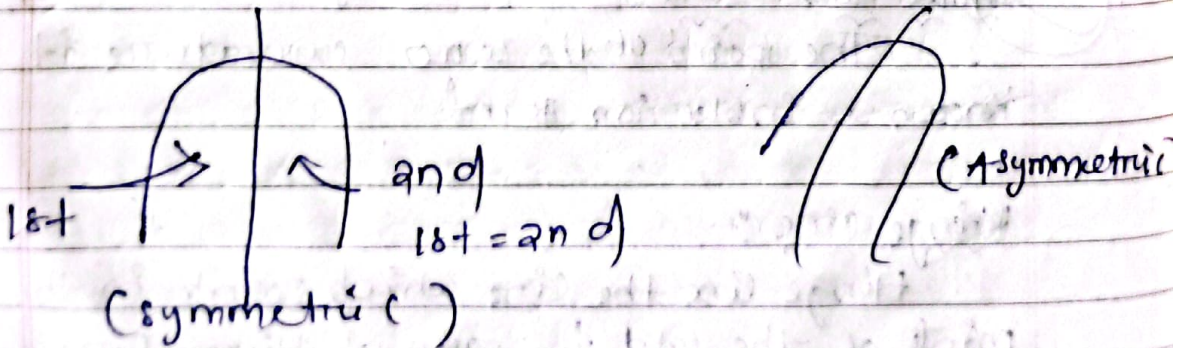 1st
2nd
1st = 2nd
(symmetric)
(Asymmetric